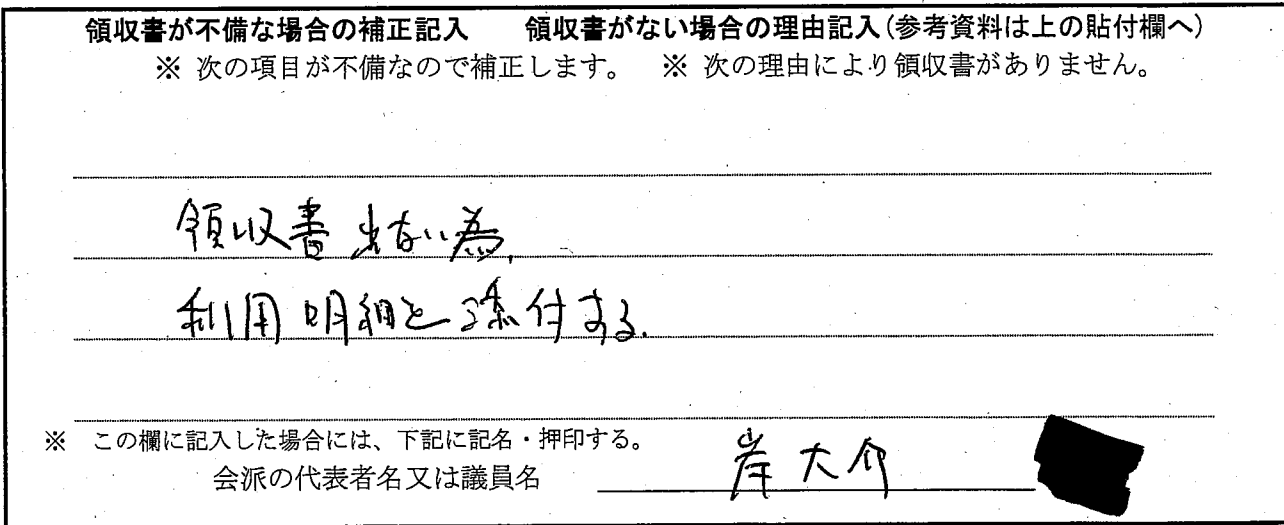 領収書が不備な場合の補正記入　領収書がない場合の理由記入(参考資料は上の貼付欄へ)
※ 次の項目が不備なので補正します。　※ 次の理由により領収書がありません。
領収書出ない為、
利用明細を添付する.
※　この欄に記入した場合には、下記に記名・押印する。
会派の代表者名又は議員名　岸大介